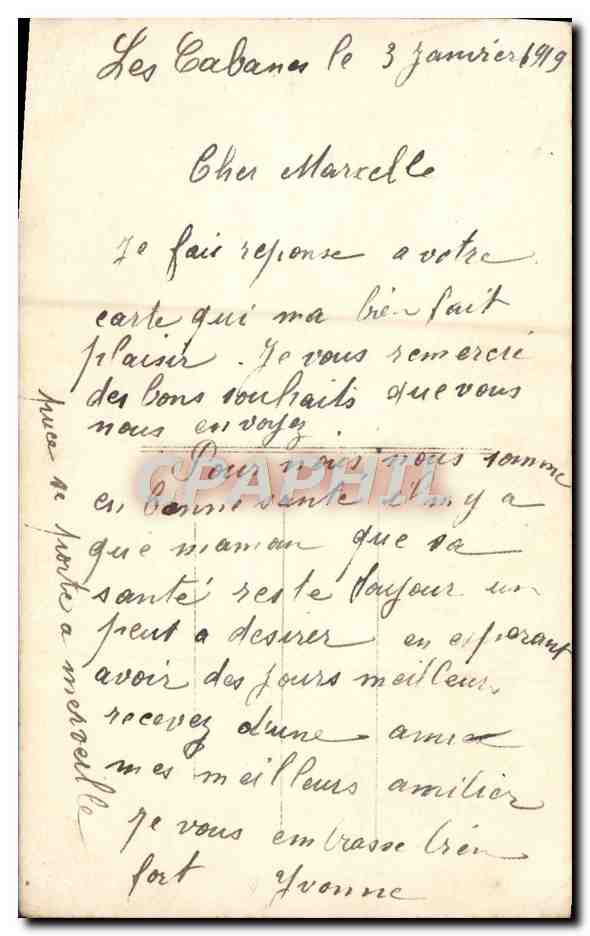 Les Cabanes le 3 Janvier 1919
Cher Marcelle
Je fais reponse a votre
carte qui ma bien fait
plaisir. Je vous remercie
des bons souhaits que vous
nous envoyez.
Pour nous nous somme
en bonne sante il ny a
que maman que sa
santé reste toujour un
peut a desirer en esperant
avoir des jours meilleurs
recevez d'une amie
mes meilleurs amitier
Je vous embrasse bien
fort Yvonne
puce se porte a merveille
CPAPHIL